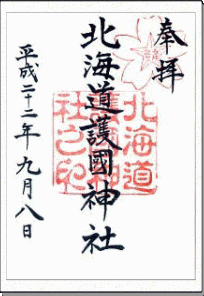 奉拝
北海道護國神社
北海道
護國神
社之印
平成二十二年九月八日